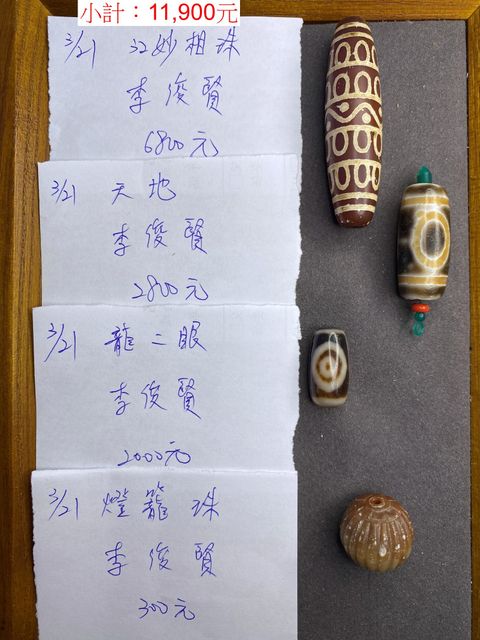 小計：11,900元
3/21 32妙相珠
李俊賢
6800元
3/21 天地
李俊賢
2800元
3/21 龍二眼
李俊賢
2000元
3/21 燈籠珠
李俊賢
300元